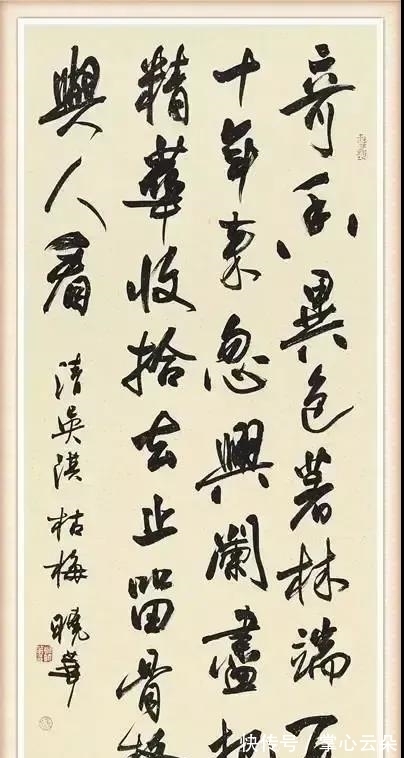 奇香異色著林端百
十年来忽興闌盡把
精華收拾去止留骨格
與人看
清吳淇枯梅 曉華
快传号 / 掌心云朵